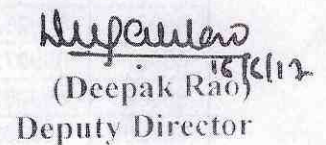 16/6/12
(Deepak Rao)
Deputy Director